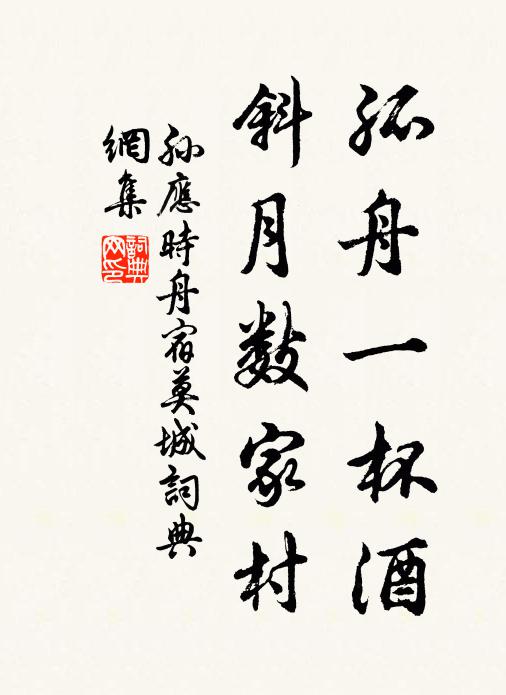 孤舟一杯酒
斜月数家村
孙應時舟宿莫城詞典
網集
詞典网印